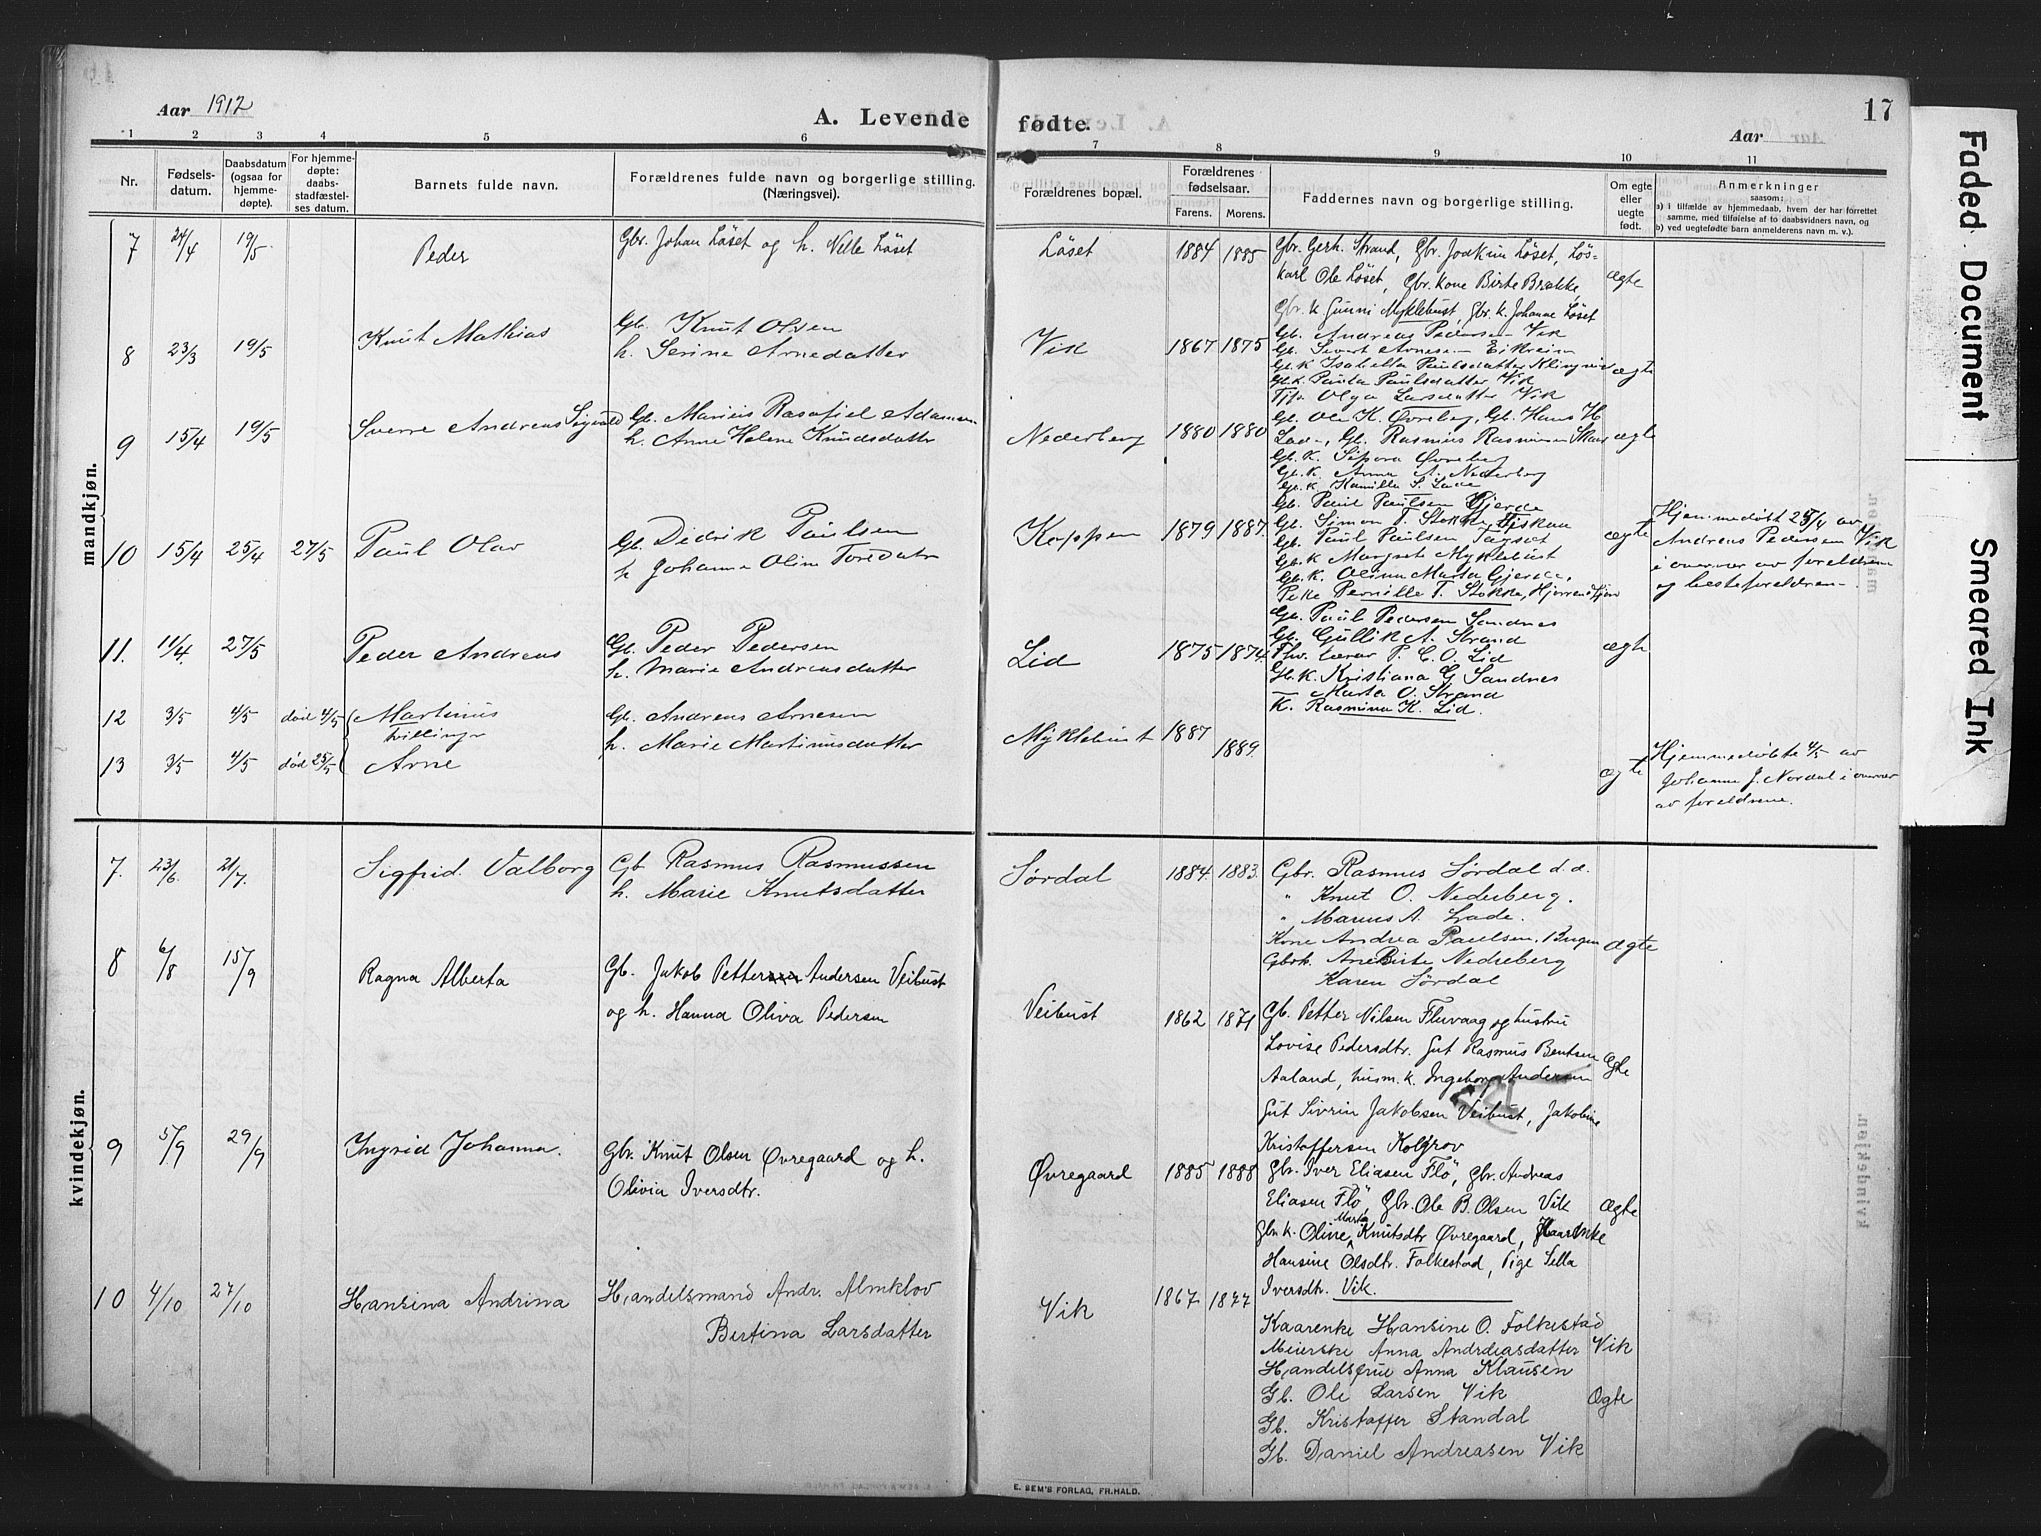 Aar 1912
A. Levende fødte.
17
Aar
1 2 3 4 5 6 7 8 9 10 11
Nr.
Fødsels-
datum.
Daabsdatum
(ogsaa for
hjemme-
døpte).
For hjemme-
døpte:
daabs-
stadfæstel-
ses datum.
Barnets fulde navn.
Forældrenes fulde navn og borgerlige stilling.
(Næringsvei).
Forældrenes bopæl.
Forældrenes
fødselsaar.
Farens. Morens.
Faddernes navn og borgerlige stilling.
Om egte
eller
uegte
født.
Anmerkninger
saasom:
a) i tilfælde av hjemmedaab, hvem der har forrettet
samme, med tilføielse av to daabsvidners navn, og
b) ved uegtefødte barn anmelderens navn m. v.).
mandkjøn.
7 24/4 19/5 Peder
Gbr. Johan Löset og h. Nelle Löset
Löset 1884 1885
Gbr. Gerh. Strand, Gbr. Joakim Löset, Lös-
karl Ole Löset, Gbr. Kone Birte Brække,
Gbr. k Gunni Myklebust, Gbr. k. Johanne Löset
ægte
8 23/3 19/5 Knut Mathias
Gb. Knut Olsen
h. Serine Arnedatter
Vik 1867 1875
Gb. Andreas Pedersen Vik
Gb. Sivert Arnesen Eikrem
Gb. K Isabella Paulsdatter Klingnes
Gb. K. Paula Paulsdatter Vik
Olga Larsdatter Vik
ægte
9 15/4 19/5 Sverre Andreas Sigvald
Gb. Marius Rasafiel Adamsen
h. Anne Helene Knudsdattr
Nederberg 1880 1880
Gb. Ole K. Øvreberg, Gb. Hans H.
Lade, Gb. Rasmus Rasmussen
Gb. K. Sipora Øvreberg
Gb. K Anna A. Nederberg
Gb. K Kamilla S. Lade
ægte
10 15/4 25/4 27/5 Paul Olav
Gb. Didrik Paulsen
h. Johanne Oline
Koppen 1879 1887
Gb. Paul Paulsen Gjerde
Gb. Simon T. Stokke,
Gb. Paul Paulsen
Gb. K Margrete Myklebust
Gb. K. Olina Marta Gjerde,
Peke Pernille T. Stokke,
ægte
Hjemmedøbt 25/4 av
Andreas Pedersen Vik
i overvær av foreldrene
og besteforeldrene.
11. 11/4. 27/5 Peder Andreas
Gb. Peder Pedersen
h. Marie Andreasdatter
Lid 1875 1874
Gb. Paul Pedersen Sandnes
Gb. Gullik A. Strand
lærer P. C. O. Lid
Gb. K. Kristiana G Sandnes
Marta O. Strand
K. Rasmina K. Lid.
ægte
12 3/5 4/5 død 4/5 Martinus
tvillinger
Gb. Andreas Arnesen
13 3/5 4/5 død 25/5 Arne
h. Marie Martinusdatter
Myklebust 1887 1889.
ægte
Hjemmedøbte 4/5 av
Johanne J. Nordal i overvær
av foreldrene.
kvindekjøn.
7. 23/6. 21/7. Sigfrid Valborg
Gb. Rasmus Rasmussen
h. Marie Knutsdatter
Sørdal 1884. 1883.
Gbr. Rasmus Sørdal d.æ.
" Knut O. Nederberg.
" Marius A. Lade.
Kone Andrea Paulsen,
Gbrk. Ane Birte Nedreberg
Karen Sørdal
Ægte
8 6/8 15/9 Ragna Alberta
Gb. Jakob Pettersen Andersen Veibust
og h. Hanna Oliva Pedersen
Veibust 1862 1871
Gb. Petter Nilsen Fluvaag og hustru
Lovise Pedersdtr. Gut Rasmus Bentsen
Aaland, husm. k. Ingeborg Andersen
Gut Sivrin Jakobsen Veibust, Jakobine
Kristoffersen Kolgrov
Ægte
9 5/9 29/9 Ingrid Johanna.
Gbr. Knut Olsen Øvregaard og h.
Olivia Iversdtr.
Øvregaard 1885 1888
Gbr. Iver Eliasen Flö, Gbr. Andreas
Eliasen Flö, Gbr. Ole B. Olsen Vik
Gbr. k. Oline Marta Knutsdtr Øvregaard, Kaarenke
Hansine Olsdtr. Folkestad, Pige Sella
Iversdtr. Vik.
Ægte
10 4/10 27/10 Hansina Andrina
Handelsmand Andr. Almklov
Bertina Larsdatter
Vik 1867 1877
Kaarenke Hansine O. Folkestad
Meierske Anna Andreasdatter Vik
Handelsfrue Anna Klausen
Gb. Ole Larsen Vik
Gb. Kristoffer Standal
Gb. Daniel Andreasen Vik
Ægte
E. SEM'S FORLAG, FR.HALD.
Faded Document
Smeared Ink